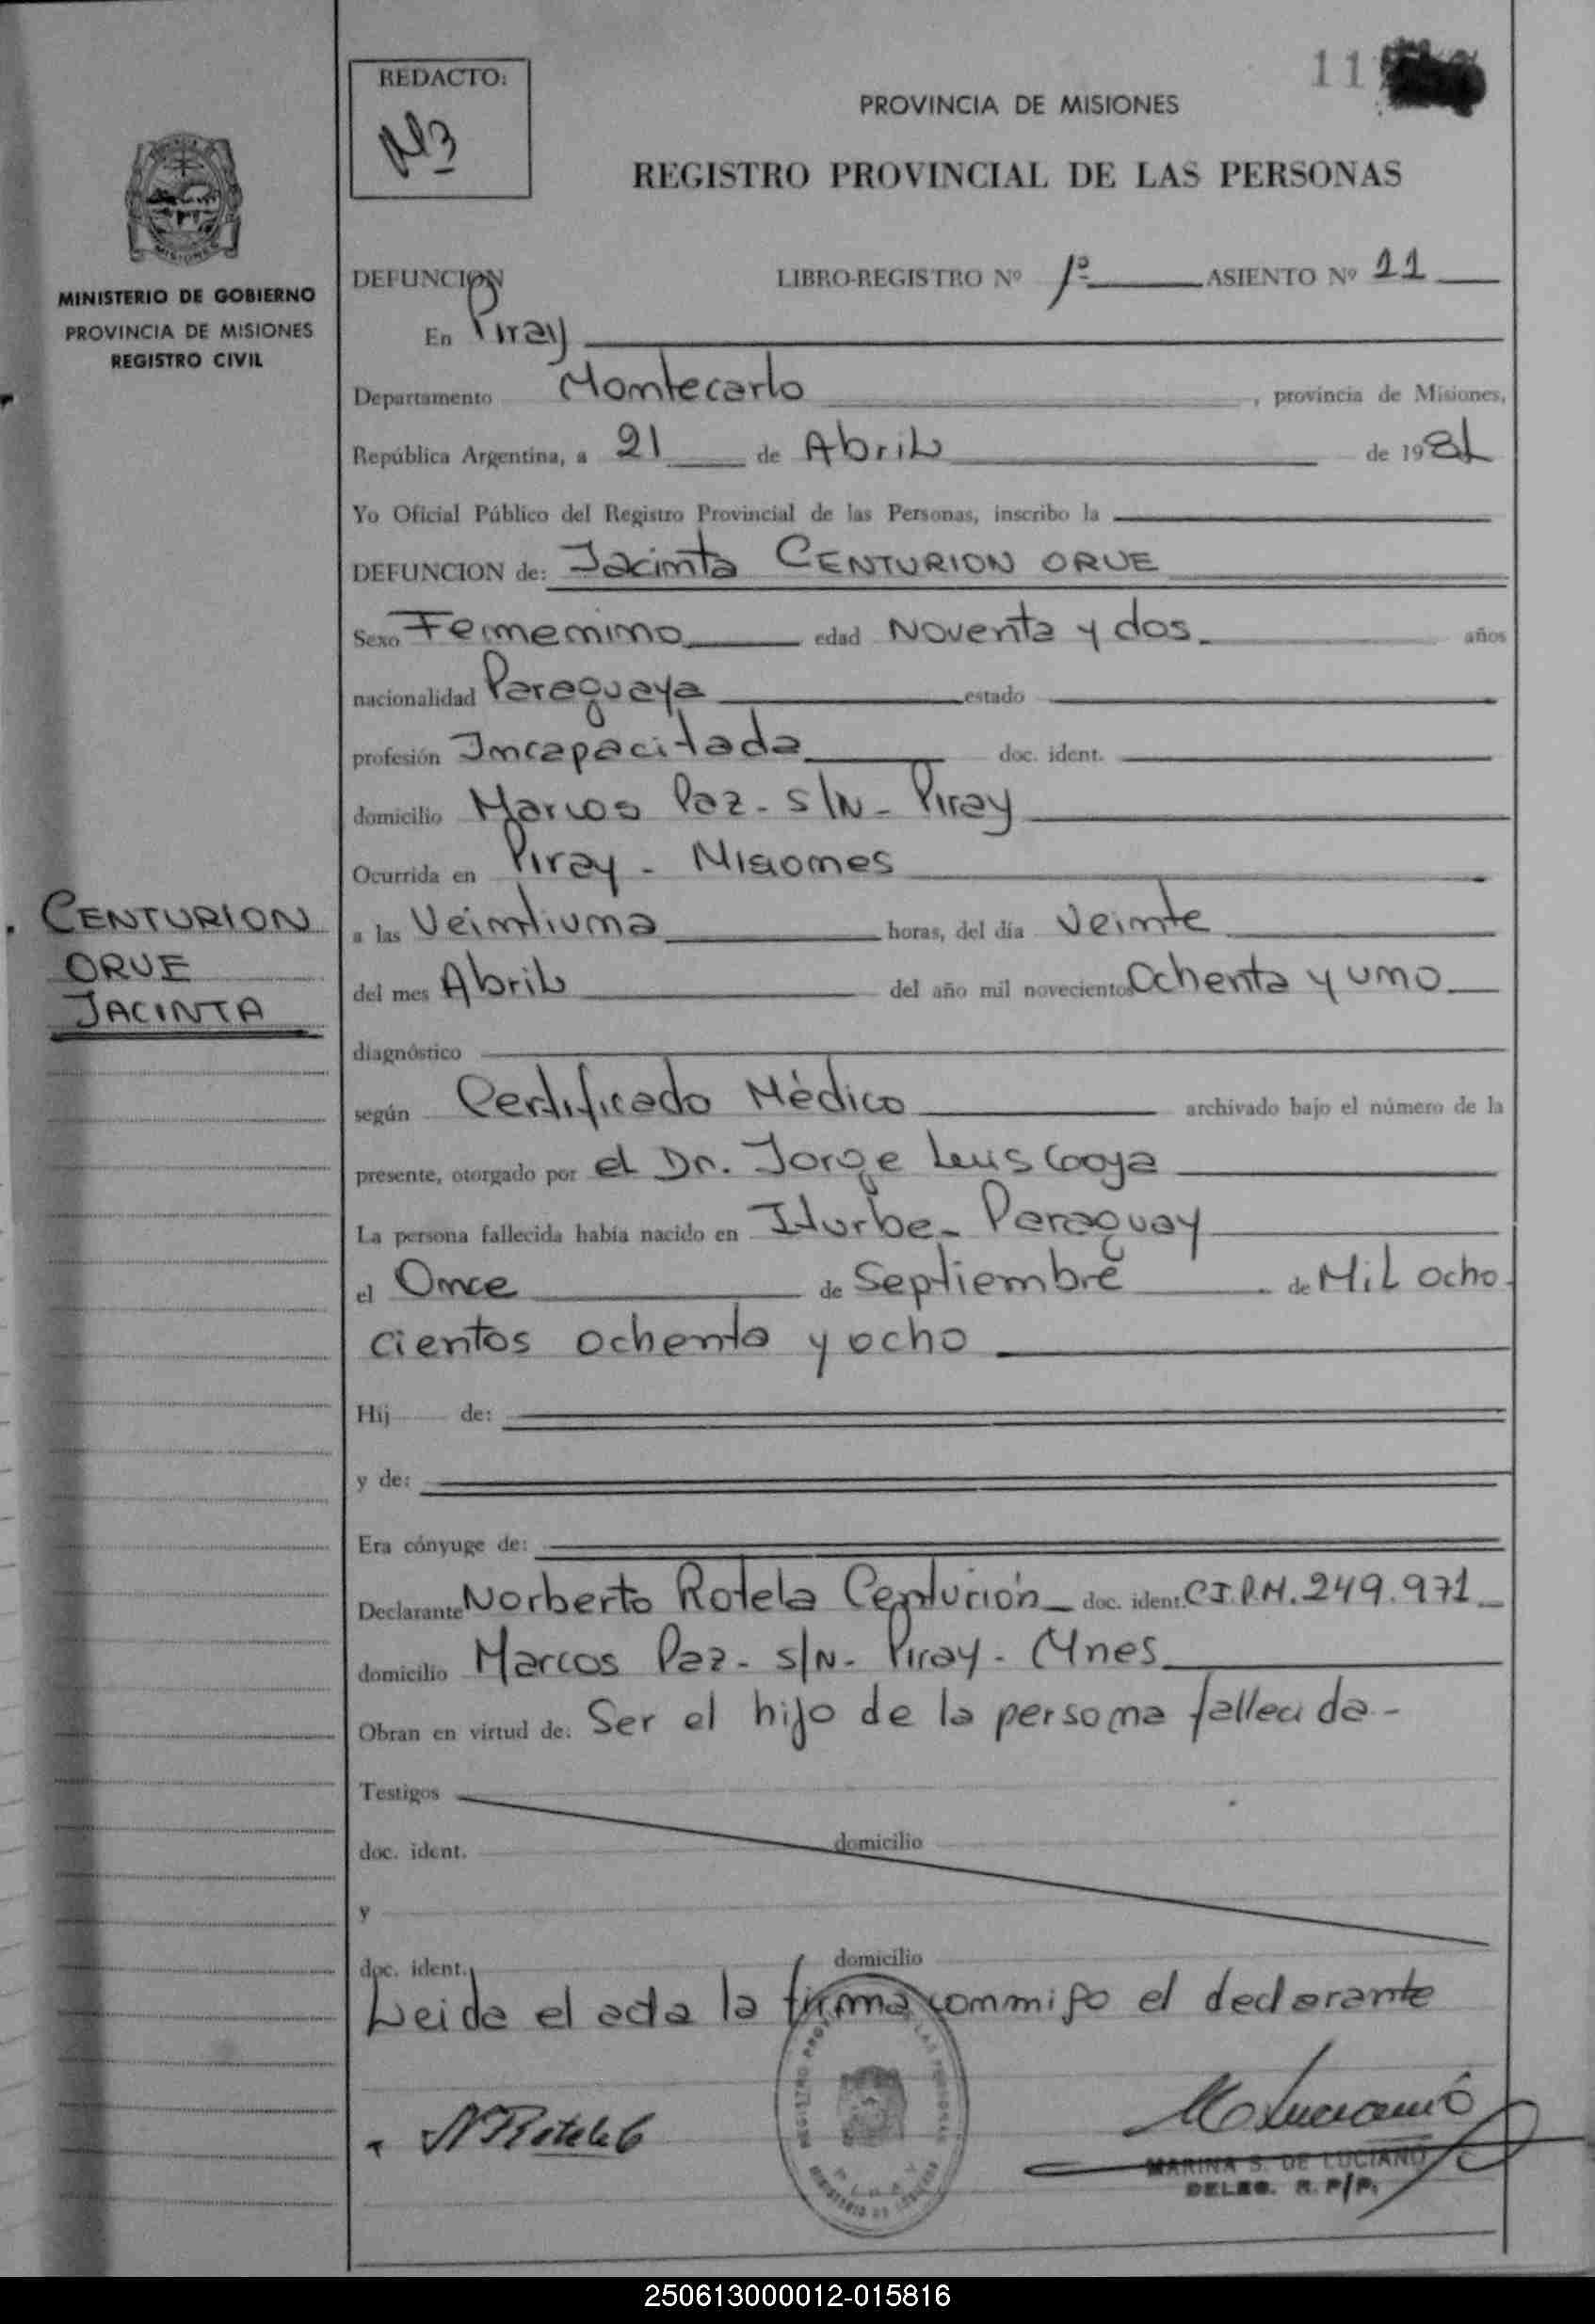 REDACTO:
11
PROVINCIA DE MISIONES
REGISTRO PROVINCIAL DE LAS PERSONAS
MINISTERIO DE GOBIERNO
PROVINCIA DE MISIONES
REGISTRO CIVIL
DEFUNCION LIBRO-REGISTRO Nº 1º ASIENTO Nº 11
En Piray
Departamento Montecarlo, provincia de Misiones,
República Argentina, a 21 de Abril de 1981
Yo Oficial Público del Registro Provincial de las Personas, inscribo la
DEFUNCION de: Jacinta CENTURION ORUE
Sexo Femenino edad Noventa y dos. años
nacionalidad Paraguaya estado
profesión Incapacitada doc. ident.
domicilio Marcos Paz - S/N - Piray
Ocurrida en Piray - Misiones
CENTURION
ORUE
JACINTA
a las Veintiuna horas, del día Veinte
del mes Abril del año mil novecientos Ochenta y uno
diagnóstico
según Certificado Mèdico archivado bajo el número de la
presente, otorgado por el Dr. Jorge Luis
La persona fallecida había nacido en Iturbe - Paraguay
el Once de Septiembre de Mil ocho
cientos ochenta y ocho
Hij de:
y de:
Era cónyuge de:
Declarante Norberto Rotela Centurión doc. ident. C.I.P.M. 249.971
domicilio Marcos Paz - s/N - Piray - Mnes
Obran en virtud de: Ser el hijo de la persona fallecida -
Testigos
doc. ident. domicilio
y
doc. ident. domicilio
Leida el acta la firma conmigo el declarante
MARINA S. DE LUCIANO
DELEG. R. P/P.
250613000012-015816